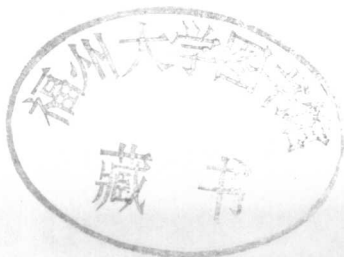 福州大学图书馆
藏书